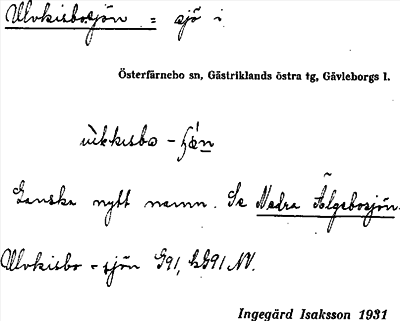 Ulvkisbosjön = sjö i
Österfärnebo sn, Gästriklands östra tg, Gävleborgs l.
Ganska nytt namn. Se Nedra Älgsbosjön.
Ulvkisbo-sjön G91, hG91 NV.
Ingegärd Isaksson 1931